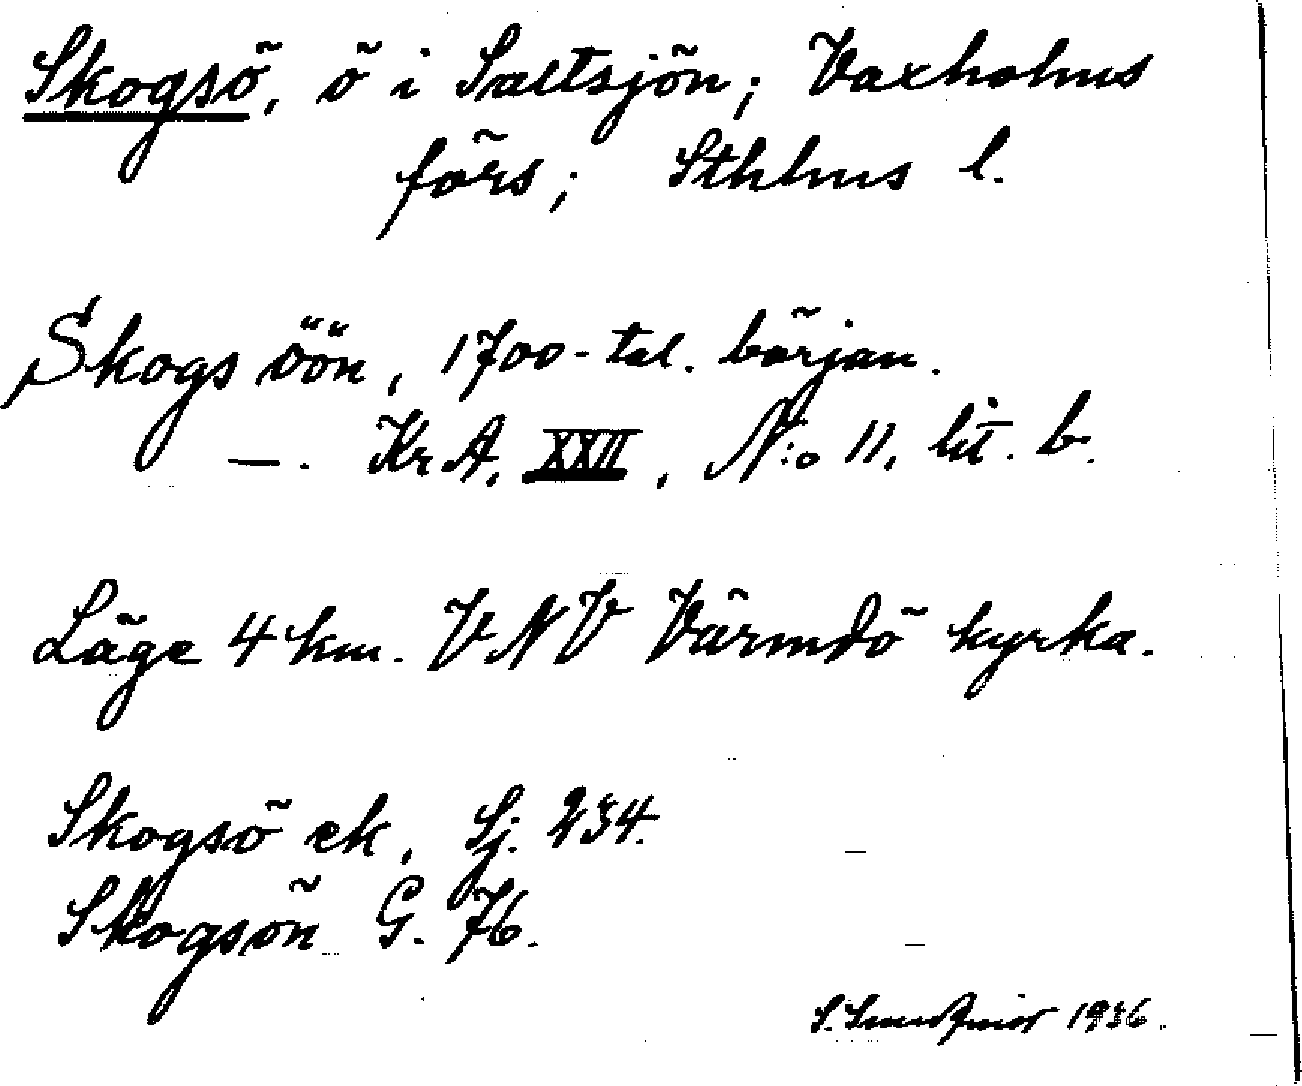 Skogsö, ö i Saltsjön; Vaxholms
förs; Sthlms l.
Skogs öön, 1700-tal. början.
—. Kr A, XXII, N:o 11, lit. b.
Läge 4 km. VNV Värmdö kyrka.
Skogsö ek, Sj. 234.
Skogsön G. 76.
S. 1936.